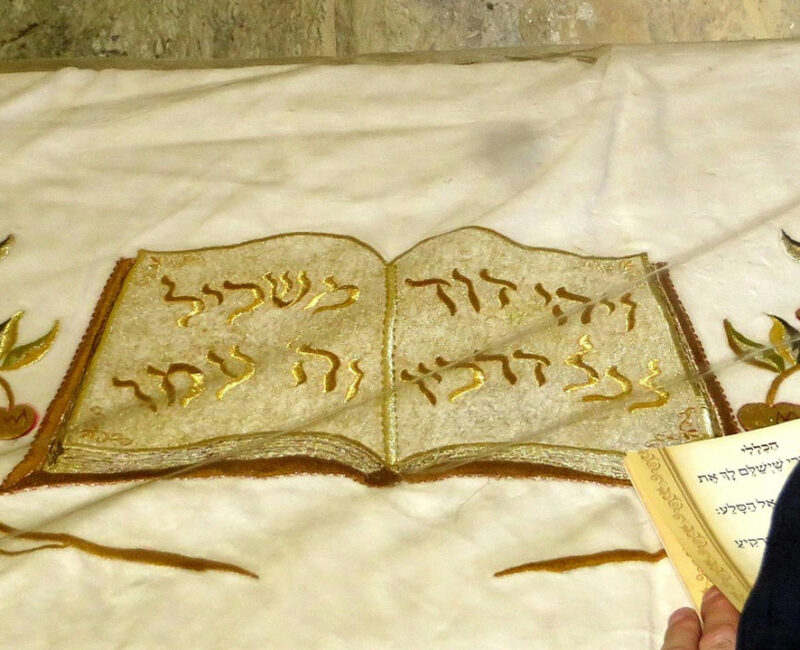 ויהי דוד
לכל דרכיו
משכיל
וה עמו
הַכְּלָלִי
שֶׁיְּשַׁלֵּם לְךָ אֶת
אֶל הַסֶּלַע: